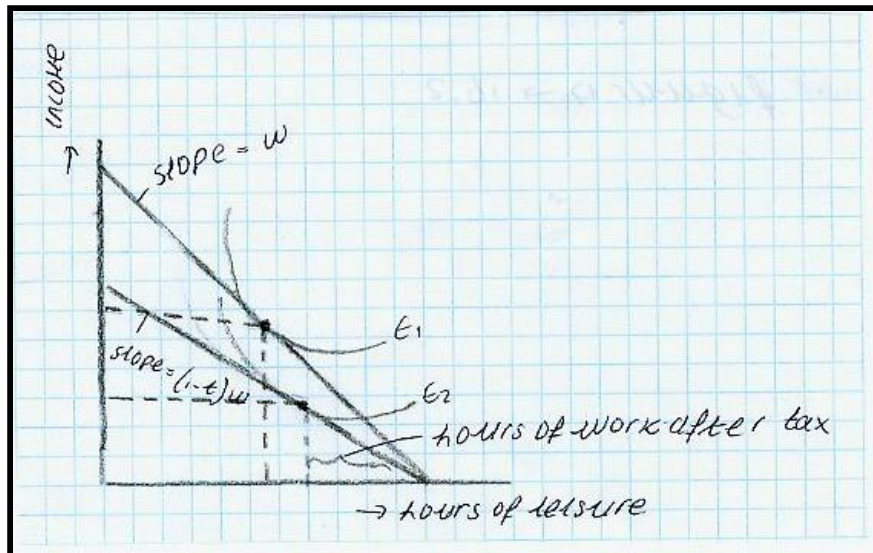 income
↑
slope = w
E1
slope=(1-t)w
E2
hours of work after tax
→ hours of leisure